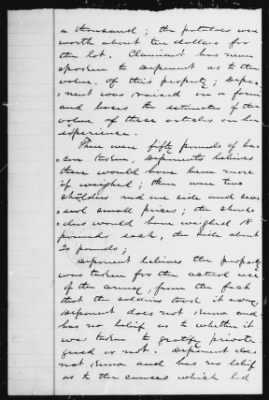 a thousand; the potatoes were
worth about ten dollars for
the lot. Claimant has never
spoken to deponent as to the
value of this property; Depo-
nent was raised on a farm
and bases the estimates of the
value of these articles on her
experience.
There were fifty pounds of ba-
con taken, Deponent believes
there would have been more
if weighed; there were two
shoulders and one side and sev-
eral small pieces; the shoul-
ders would have weighed
pounds each, the side about
20 pounds;
Deponent believes the property
was taken for the actual use
of the army, from the fact
that the soldiers took it away
Deponent does not know and
has no belief as to whether it
was taken to gratify private
greed or not. Deponent does
not know and has no belief
as to the causes which led